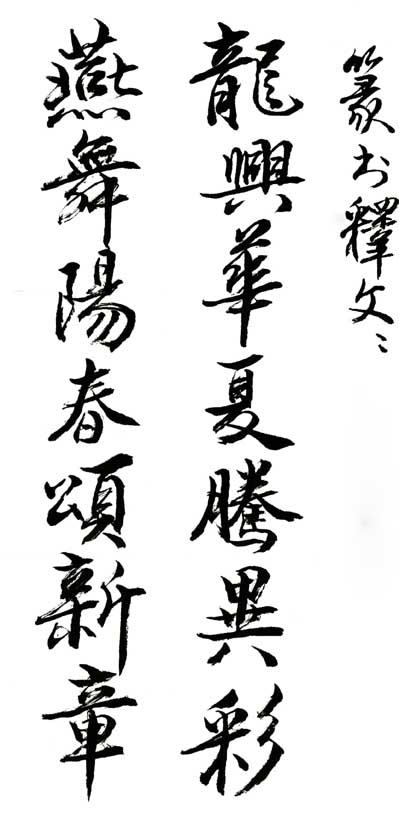 篆书釋文:
龍興華夏騰異彩
燕舞陽春頌新章